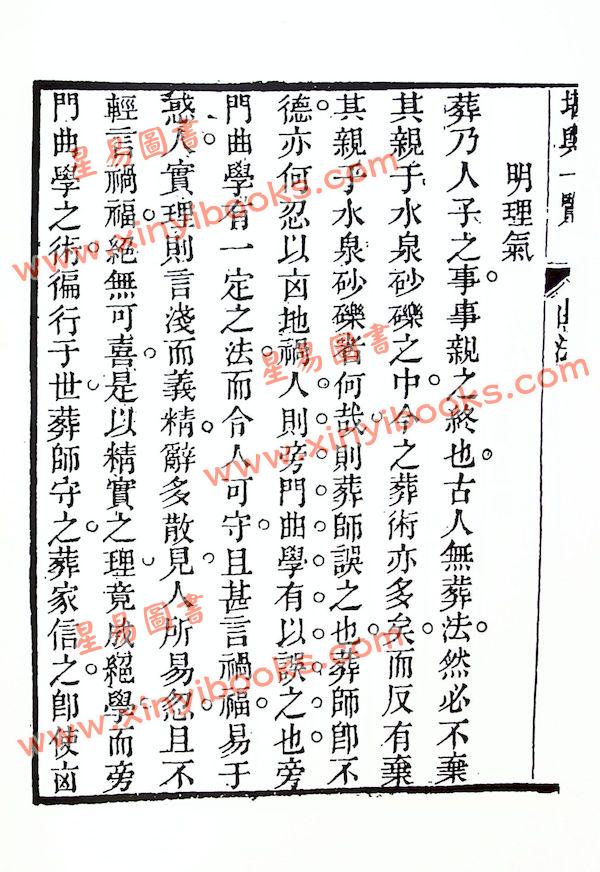 堪輿一覽
明理氣
葬乃人子之事事親之終也古人無葬法然必不棄
其親于水泉砂礫之中今之葬術亦多矣而反有棄
其親于水泉砂礫者何哉則葬師誤之也葬師卽不
德亦何忍以凶地禍人則旁門曲學有以誤之也旁
門曲學有一定之法而令人可守且甚言禍福易于
惑人實理則言淺而義精辭多散見人所易忽且不
輕言禍福絕無可喜是以精實之理竟成絕學而旁
門曲學之術徧行于世葬師守之葬家信之卽使凶
星易圖書
www.xinyibooks.com
星易圖書
www.xinyibooks.com
星易圖書
www.xinyibooks.com